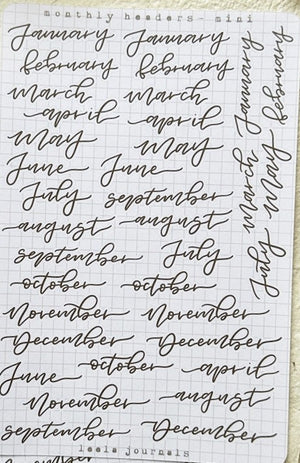 monthly headers - mini
January January
february february
march march
april april
May May
June June
July september
august august
september July
october october
November November
December December
June october april
November august
September December
leela journals
January february
March May
July